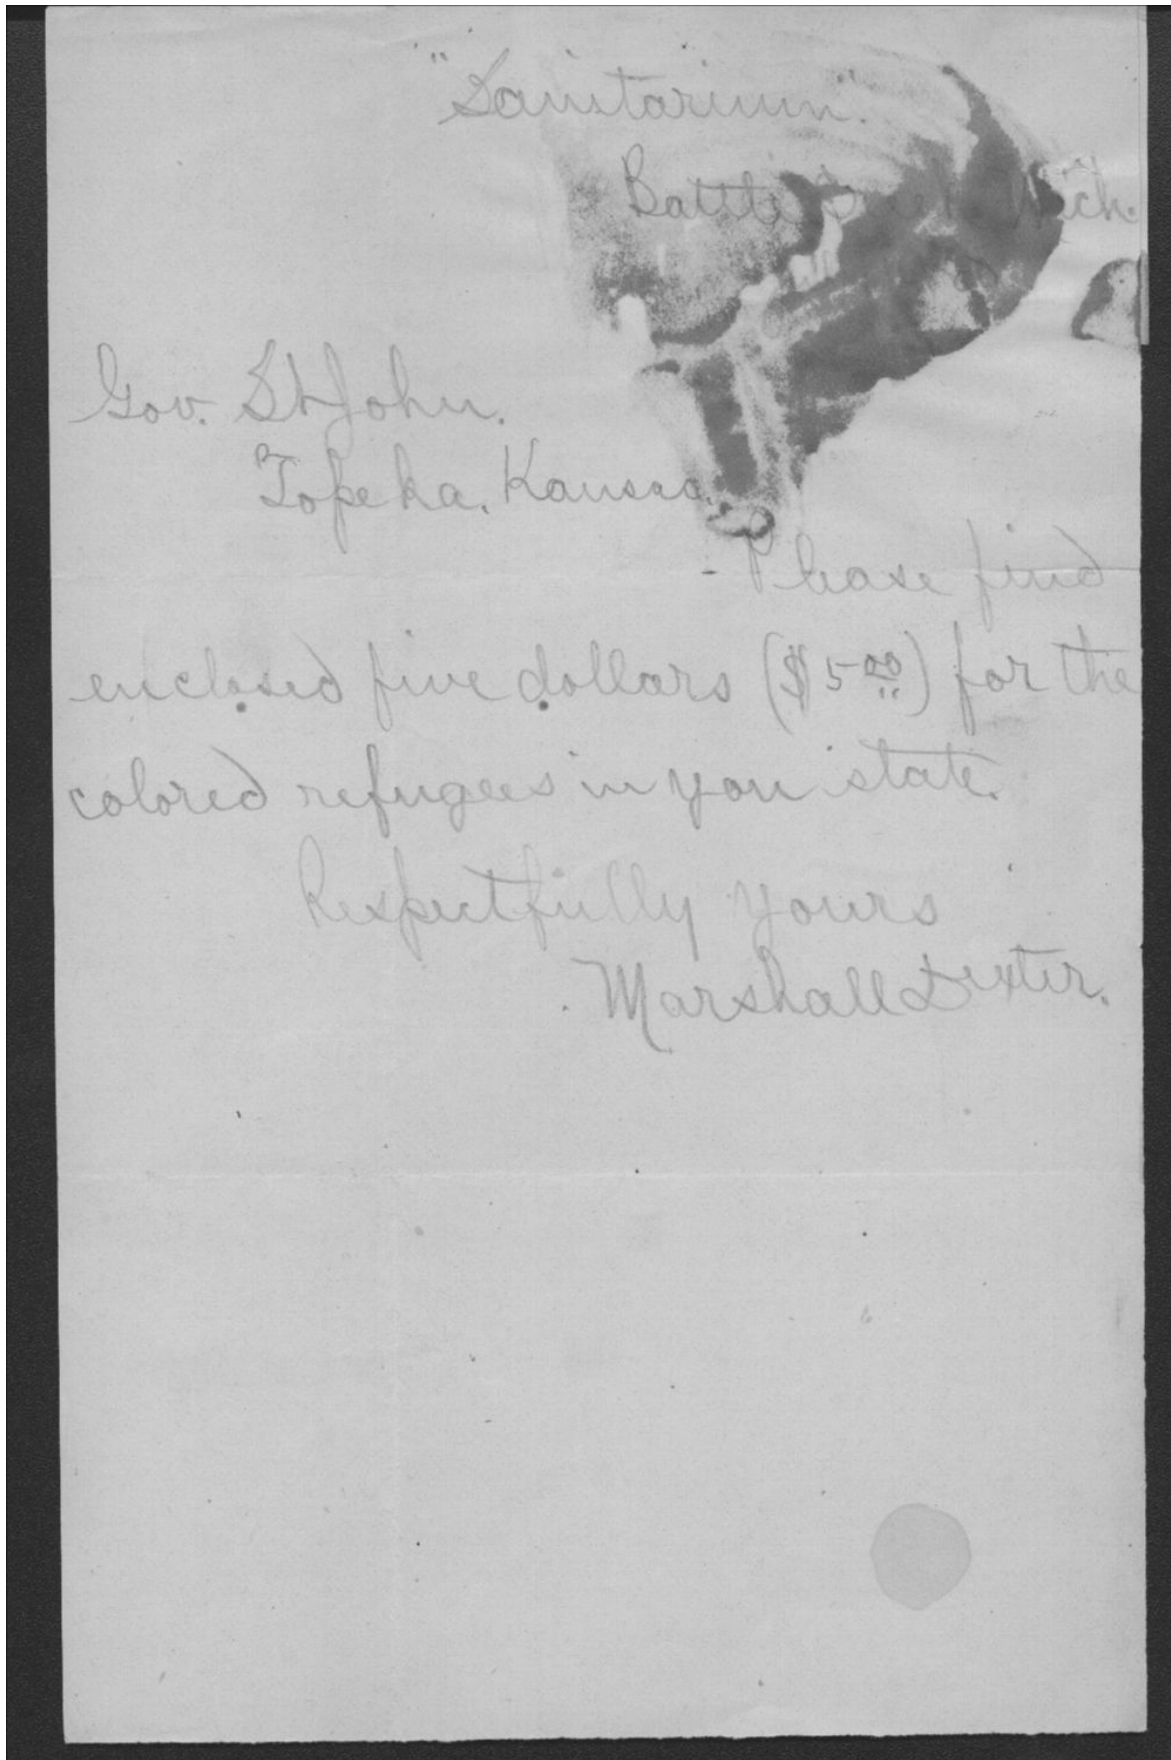 "Sanitarium".
Battle Creek Mich.
Gov. St John.
Topeka, Kansas.
- Please find
enclosed five dollars ($5.00) for the
colored refugees in you state.
Respectfully yours
Marshall Dexter.